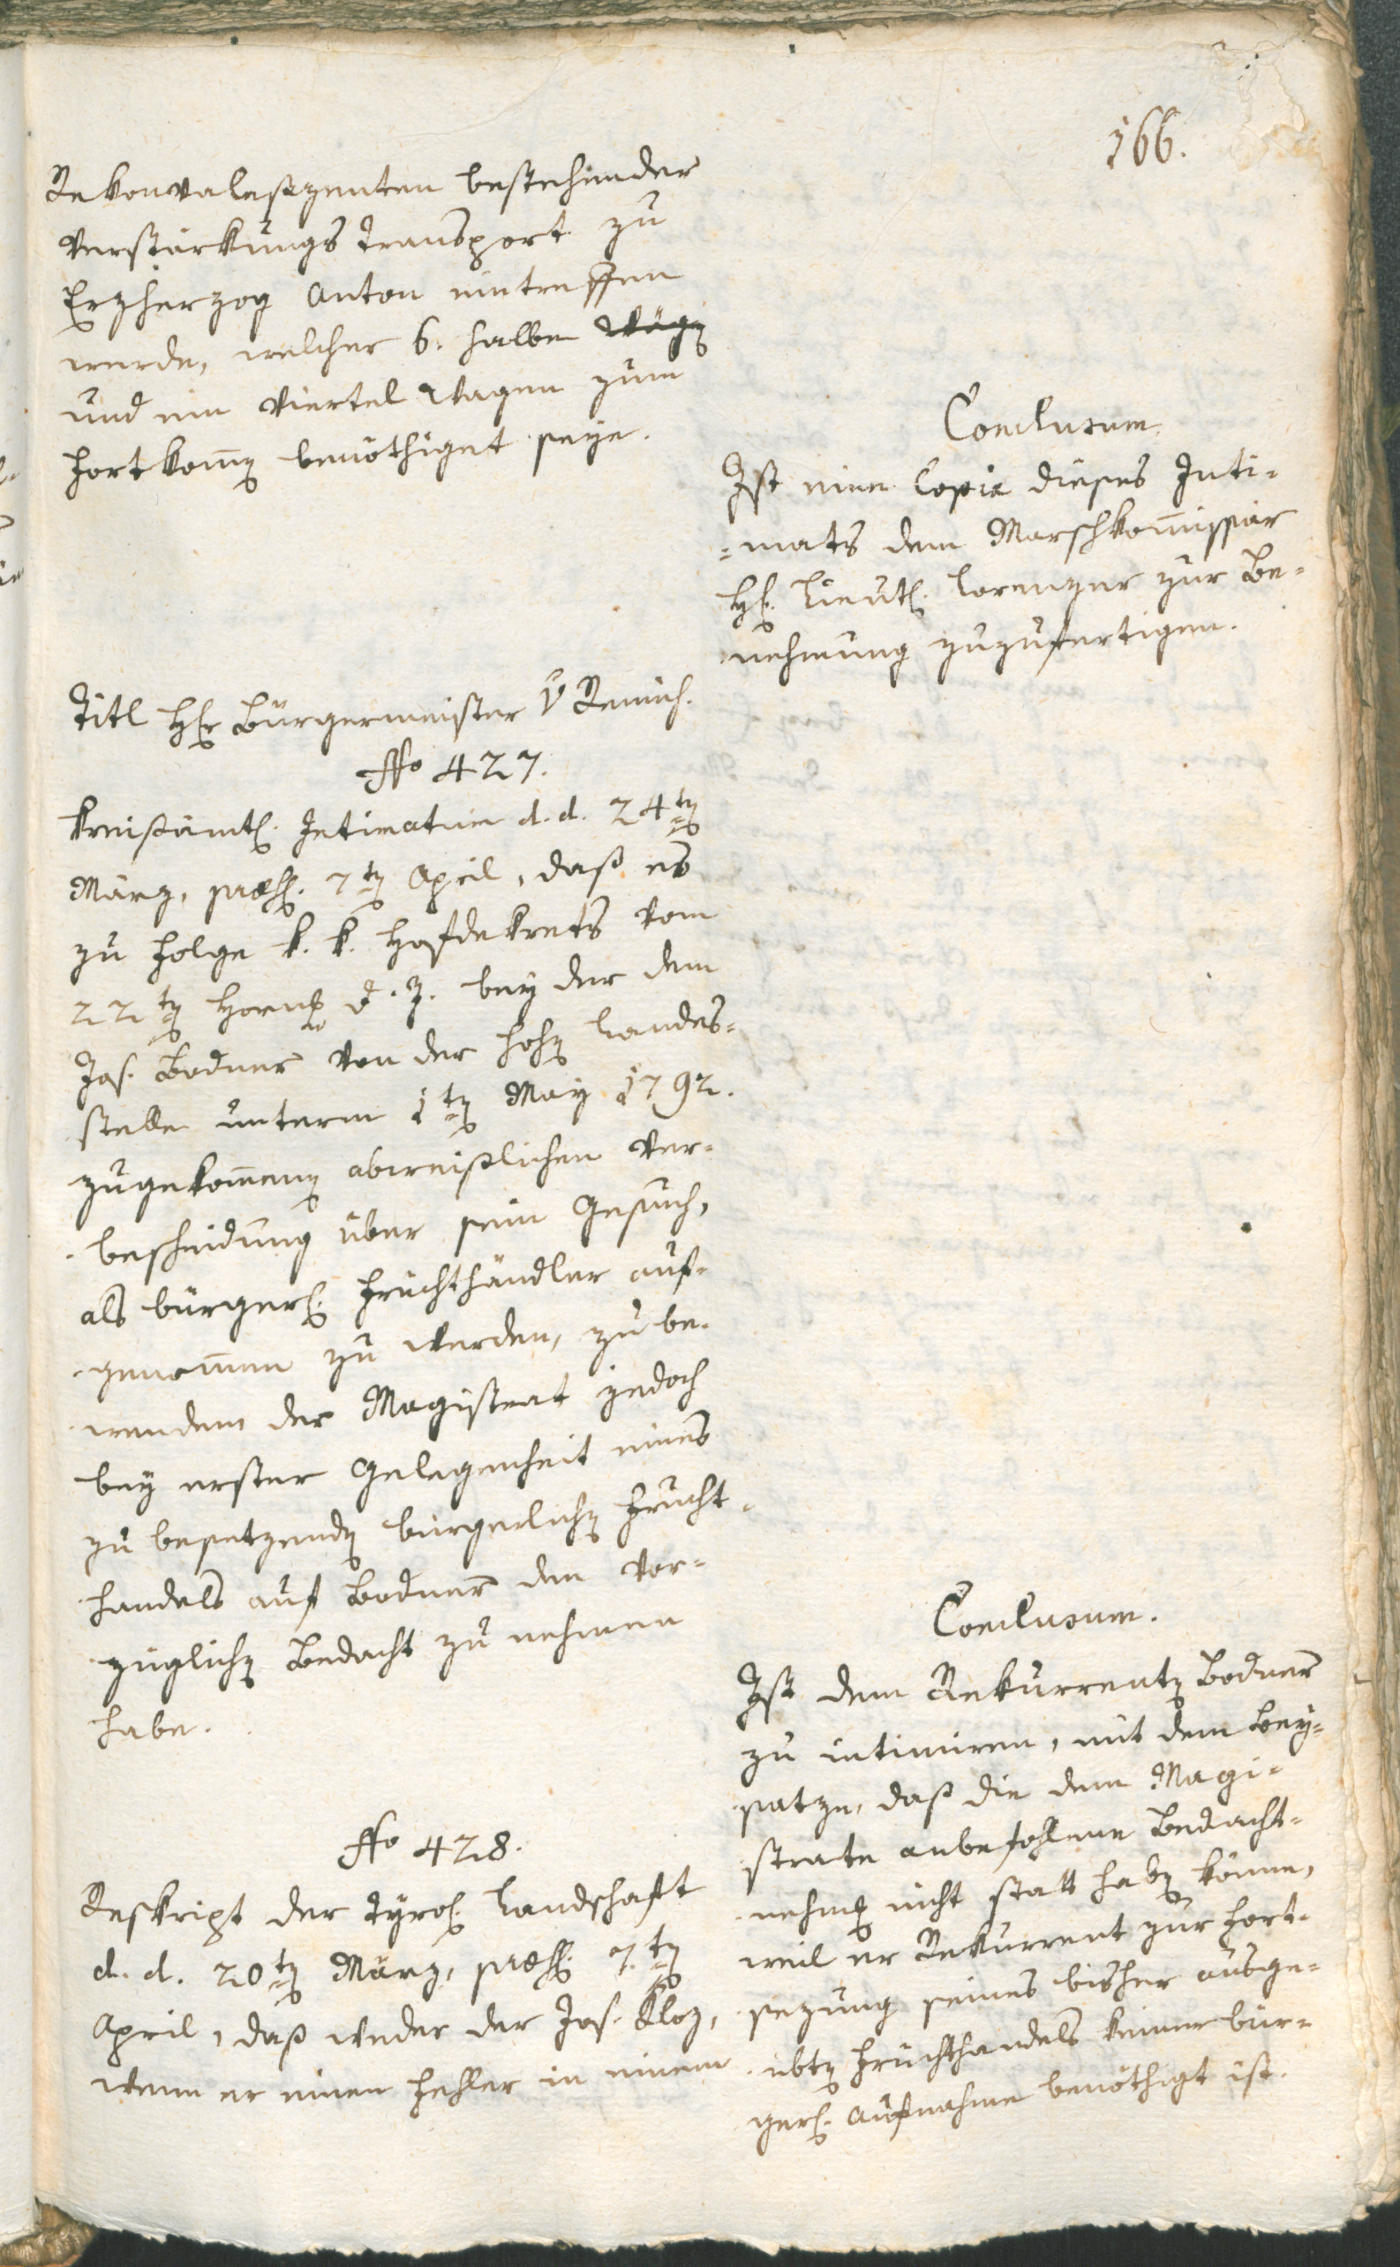 166.
Rekonvaleszenten bestehender
Verstärkungs Transport zu
Erzherzog Anton eintreffen
werde, welcher 6. halbe Wäg
und ein Viertel Wagen zum
Fortkom̄en benöthiget seye.
Conclusum.
Ist eine Copia dieses Inti-
=mats dem Marschkom̄issär
H. Lieut. Lorenzer zur Be-
nehmung zuzufertigen.
Titl H. Bürgermeister v Remich.
No 427.
Kreisämtl. Intimatum d. d. 24ten
März, præs. 7ten April, daß es
zu Folge k. k. Hofdekrets vom
22ten Horn. d. J. bey der dem
Jos. Bodner von der hohen Landes-
stelle unterm 1ten May 1792.
zugekom̄enen abweislichen Ver-
bescheidung über sein Gesuch,
als bürgerl. Fruchthändler auf-
genom̄men zu werden, zu be-
wendem der Magistrat jedoch
bey erster Gelegenheit eines
zu besetzenden bürgerlichen Frucht-
handels auf Bodner den vor-
züglichen Bedacht zu nehmen
habe.
Conclusum.
Ist dem Rekurrenten Bodner
zu intimiren, mit dem Bey-
satze, daß die dem Magi-
strate anbefohlene Bedacht-
nehmung nicht statt haben könne,
weil er Rekurrent zur Fort-
sezung seines bisher ausge-
übten Fruchthandels keiner bür-
gerl. Aufnahme benöthigt ist.
No 428.
Reskript der Tyrol. Landschaft
d. d. 20ten März, præs. 7ten
April, daß weder der Jos. Kloz,
wenn er einen Fehler in einem